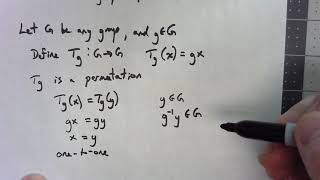 Let G be any group, and g∈G
Define Tg : G→G   Tg(x) = gx
Tg is a permutation
Tg(x) = Tg(y)   y∈G
gx = gy   g⁻¹y ∈ G
x = y
one-to-one